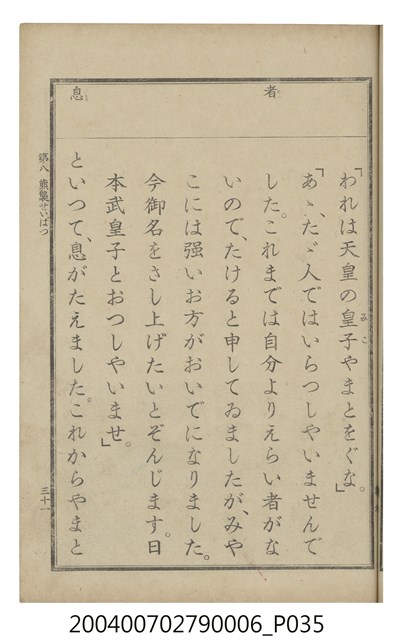 者
息
「われは天皇の皇子やまとをぐな。」
みこ
「あゝ、たゞ人ではいらつしやいませんで
した。これまでは自分よりえらい者がな
いので、たけると申してゐましたが、みや
こには强いお方がおいでになりました。
今御名をさし上げたいとぞんじます。日
本武皇子とおつしやいませ。」
といつて、息がたえました。これからやまと
第八 熊襲せいばつ
三十一
200400702790006_P035